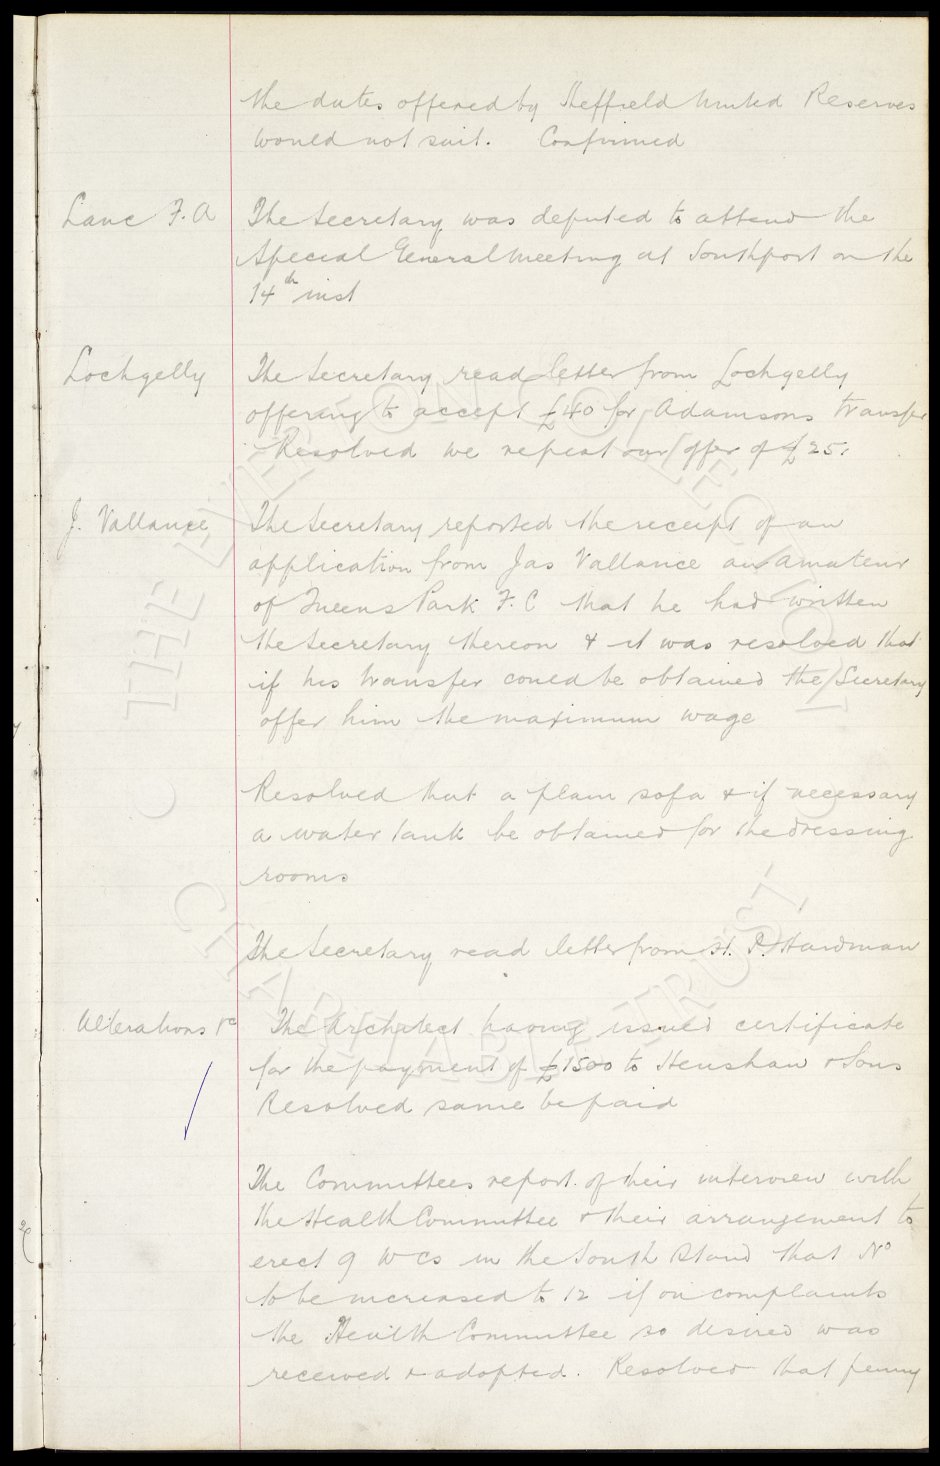 the dates offered by Sheffield United Reserves
would not suit. Confirmed
Lanc F.A
The Secretary was deputed to attend the
Special General Meeting at Southport on the
14th inst
Lochgelly
The Secretary read letter from Lochgelly
offering to accept £40 for Adamsons transfer
Resolved we repeat our offer of £25.
J. Vallance
The Secretary reported the receipt of an
application from Jas Vallance an amateur
of Queens Park F.C that he had written
the Secretary thereon & it was resolved that
if his transfer could be obtained the Secretary
offer him the maximum wage
Resolved that a plain sofa & if necessary
a water tank be obtained for the dressing
rooms
The Secretary read letter from H. P. Hardman
Alterations &c
The Architect having issued certificate
for the payment of £1500 to Henshaw & Sons
Resolved same be paid
The Committees report of their interview with
the Health Committee & their arrangement to
erect 9 W Cs in the South Stand that No
to be increased to 12 if on complaints
the Health Committee so desired was
received & adopted. Resolved that penny
© THE EVERTON COLLECTION
CHARITABLE TRUST